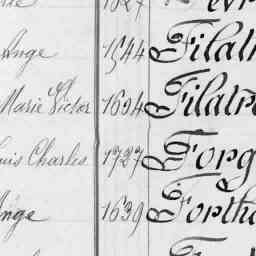 Ange 1544 Filatr
Marie Victor 1694 Filatre
uis Charles 1727 Forg
Ange 1639 Forth